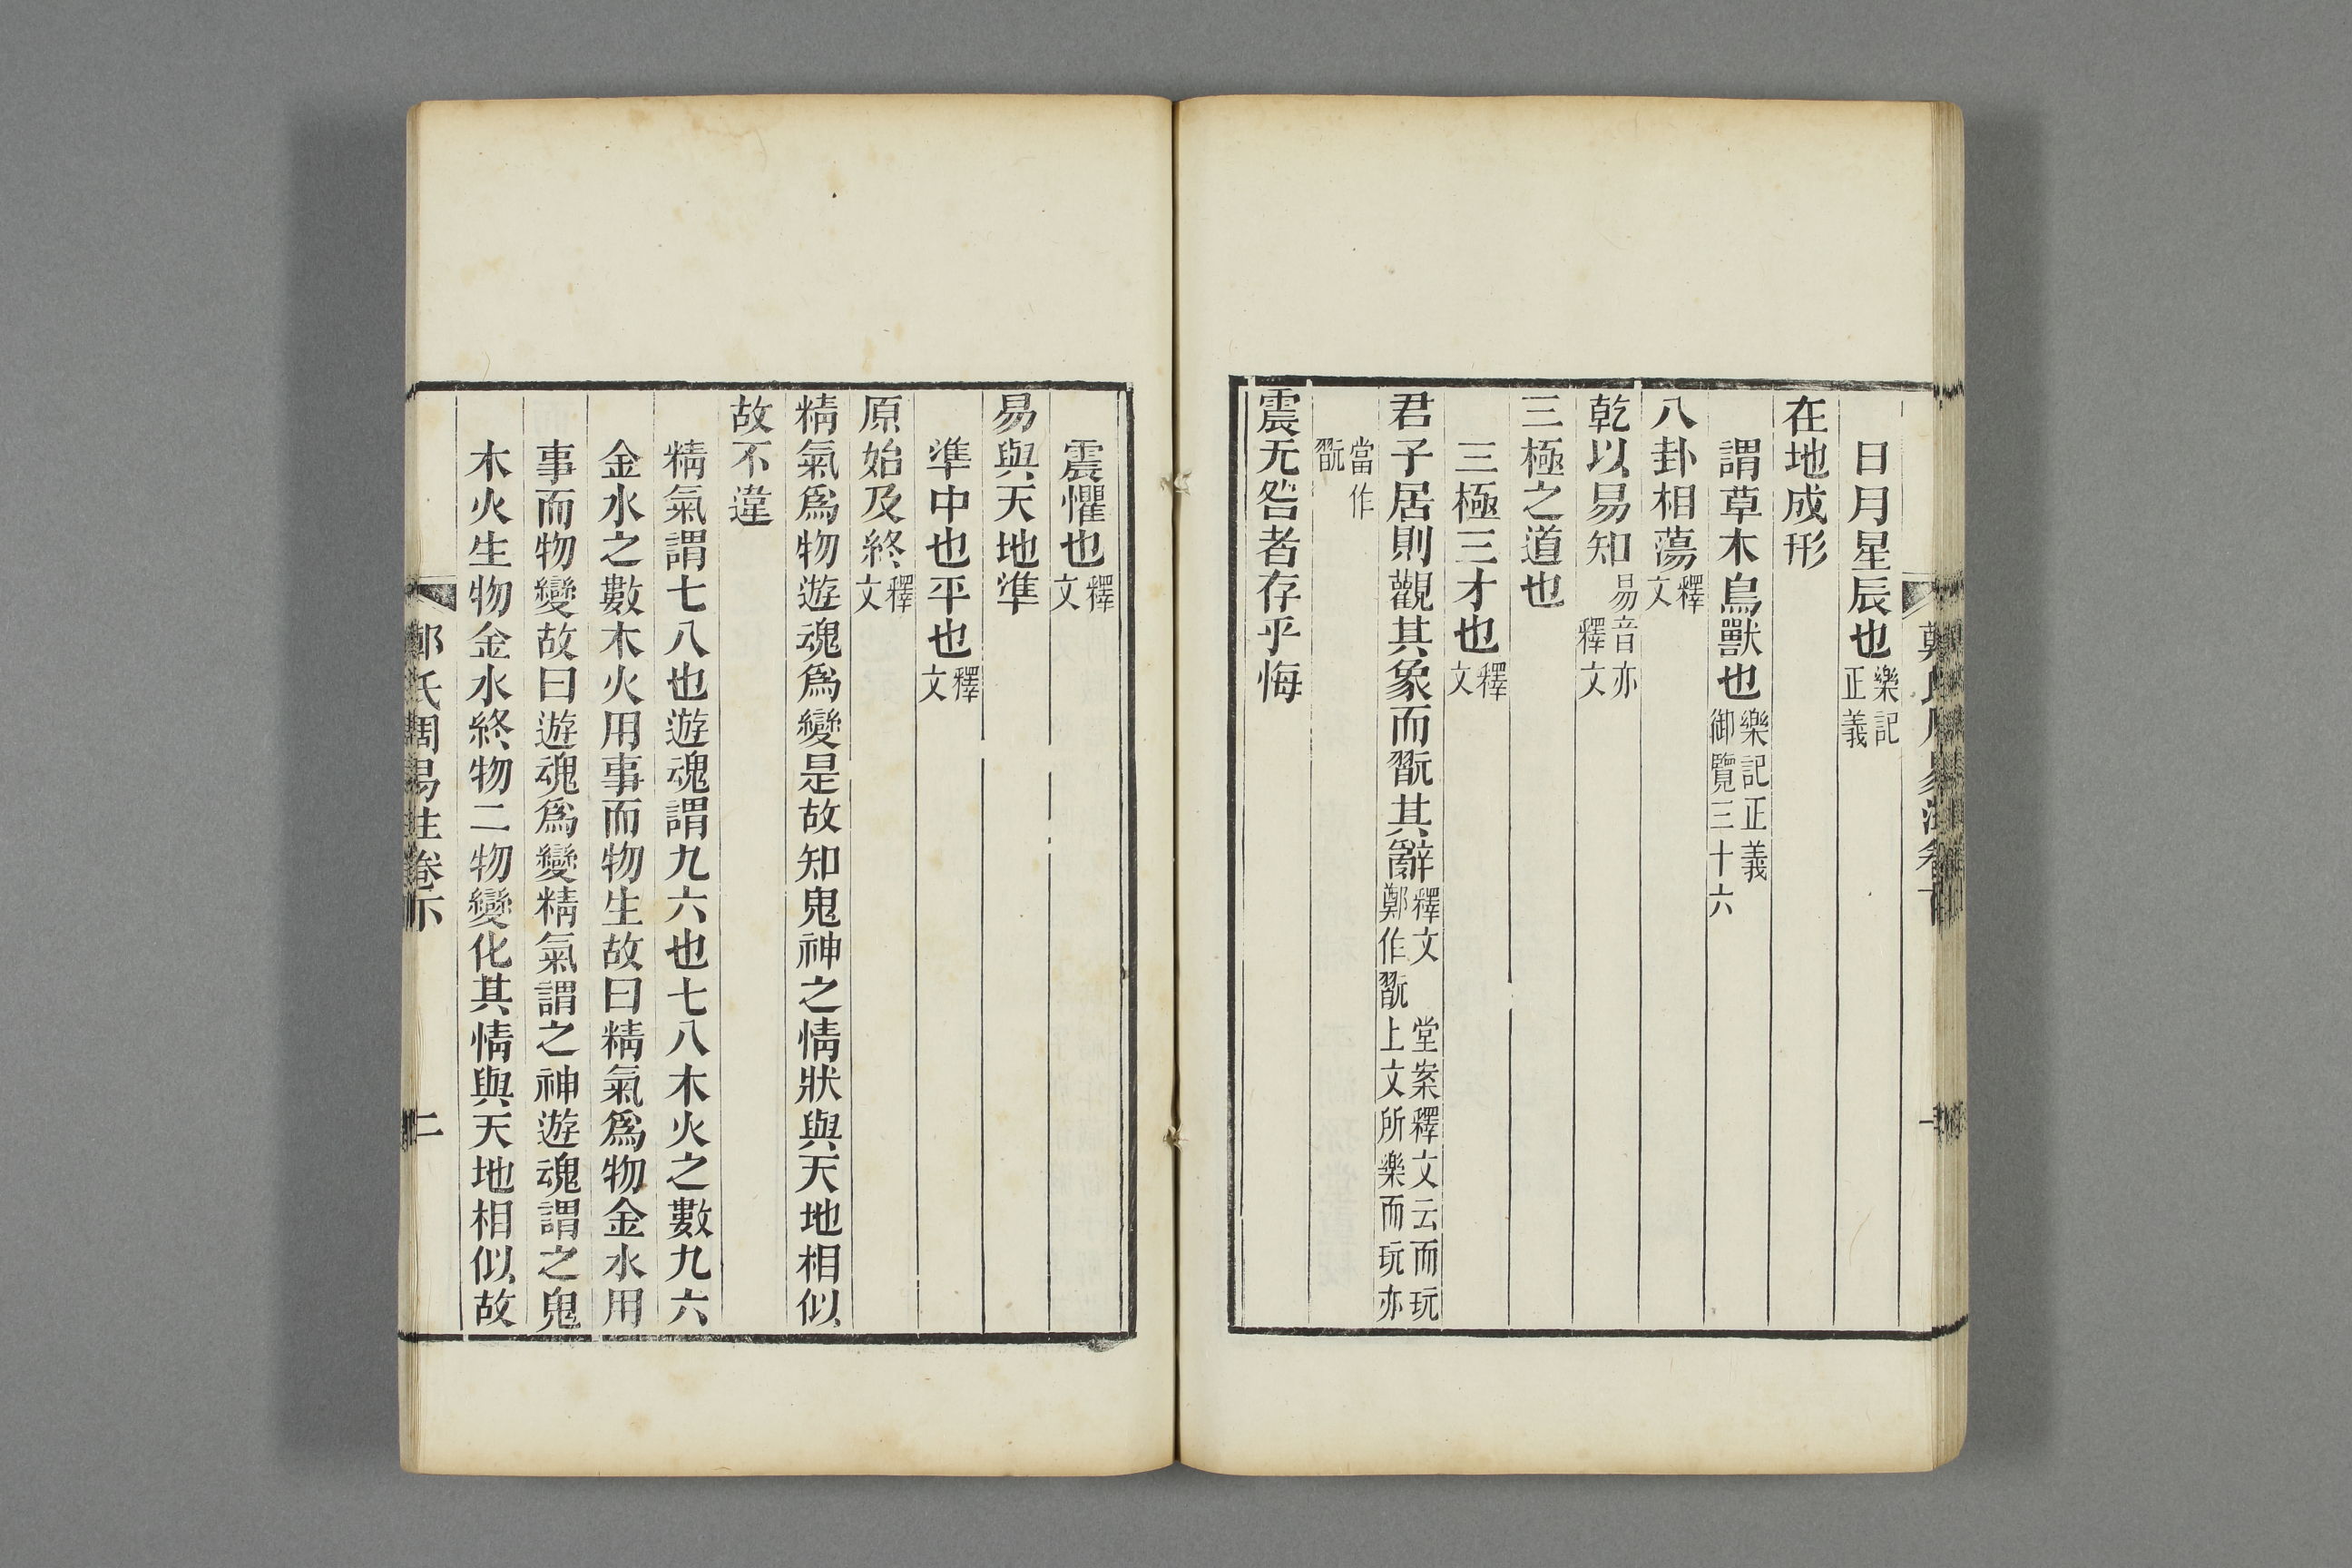 鄭氏周易注卷下
一
日月星辰也樂記正義
在地成形
謂草木鳥獸也樂記正義御覽三十六
八卦相蕩釋文
乾以易知易音亦釋文
三極之道也
三極三才也釋文
君子居則觀其象而翫其辭釋文鄭作翫 堂案釋文云而玩上文所樂而玩亦
當作翫
震无咎者存乎悔
震懼也釋文
易與天地準
準中也平也釋文
原始及終釋文
精氣爲物遊魂爲變是故知鬼神之情狀與天地相似
故不違
精氣謂七八也遊魂謂九六也七八木火之數九六
金水之數木火用事而物生故曰精氣爲物金水用
事而物變故曰遊魂爲變精氣謂之神遊魂謂之鬼
木火生物金水終物二物變化其情與天地相似故
鄭氏周易注卷下
二